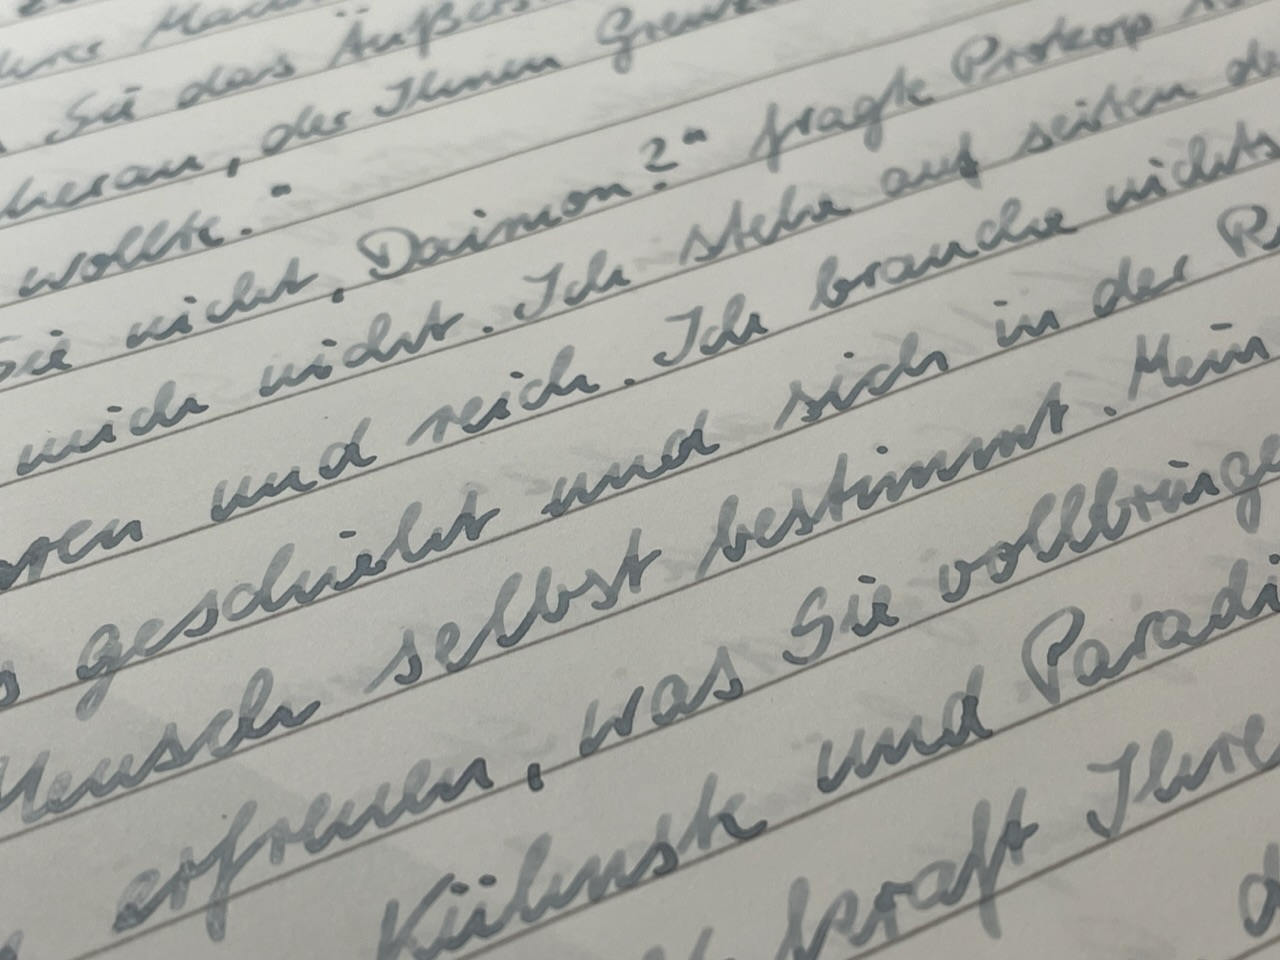 Sie das Äußers
heran, der Ihnen Grenze
wollte."
Sie nicht, Daimon?" fragte Prokop
mich nicht. Ich stehe auf seiten de
und reich. Ich brauche nichts
geschieht und sich in der
Mensch selbst bestimmt. Mein
erfreuen, was Sie vollbringe
Kühnste und Paradi
kraft Ihre